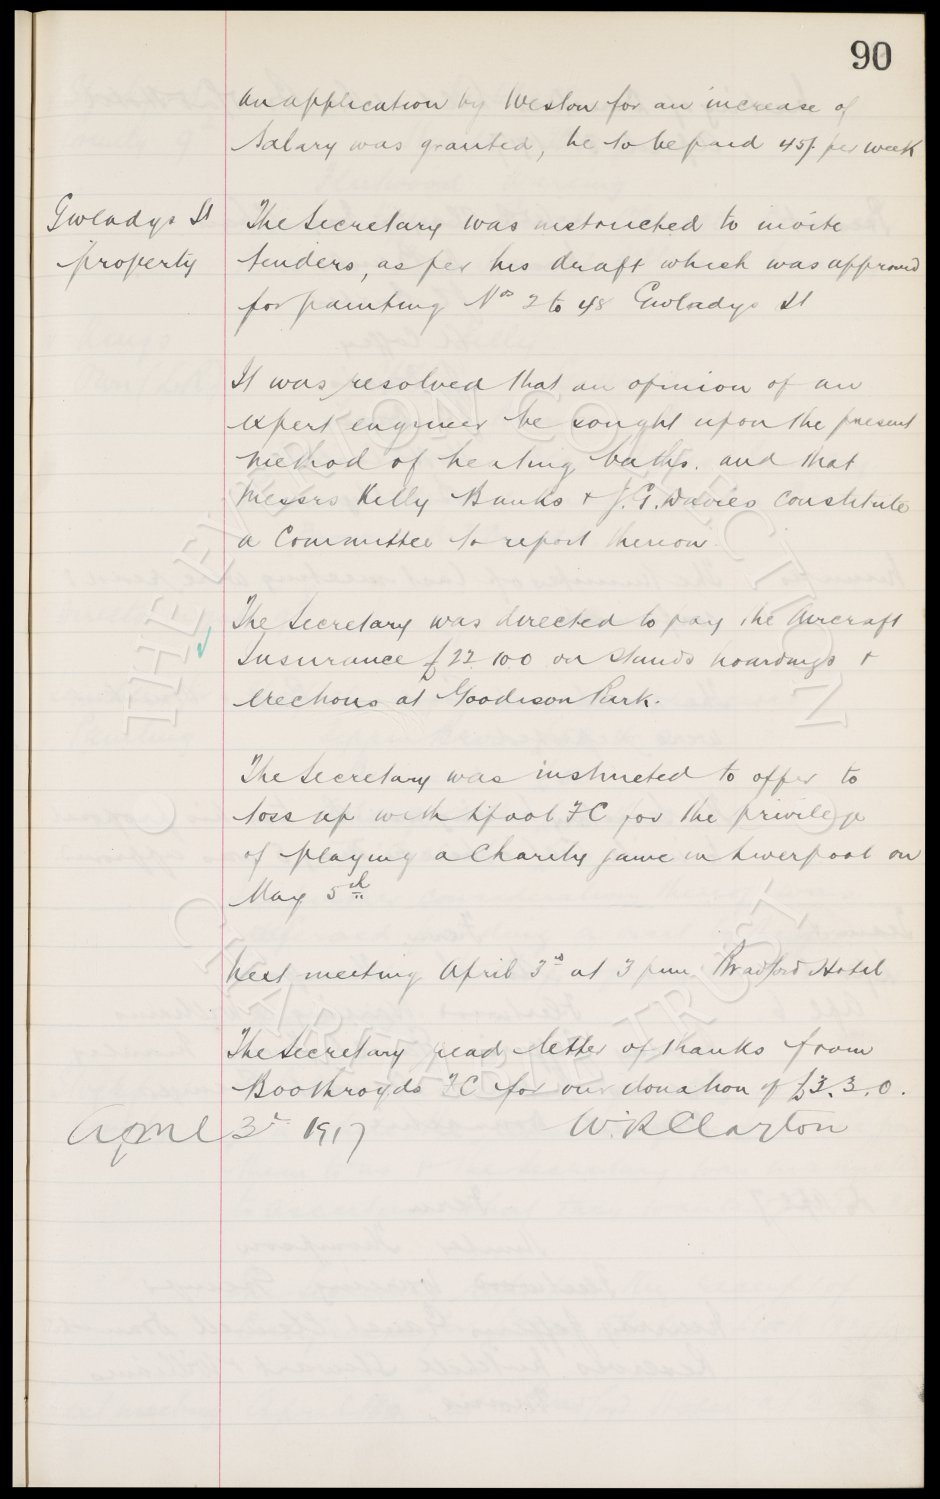 90
An application by Weston for an increase of
Salary was granted, he to be paid 45/- per week
Gwladys St
property
The Secretary was instructed to invite
tenders, as per his draft which was approved
for painting Nos 2 to 48 Gwladys St
It was resolved that an opinion of an
expert engineer be sought upon the present
method of heating baths. and that
Messrs Kelly Banks + J. G. Davies constitute
a Committee to report thereon
The Secretary was directed to pay the Aircraft
Insurance £22 10 0 on Stands hoardings +
erections at Goodison Park.
The Secretary was instructed to offer to
toss up with L'pool FC for the privilege
of playing a Charity game in Liverpool on
May 5th
Next meeting April 3rd at 3 p.m. Bradford Hotel
The Secretary read letter of thanks from
Boothroyds FC for our donation of £3.3.0.
April 3rd 1917 W. R Clayton
THE EVERTON COLLECTION
CHARITABLE TRUST